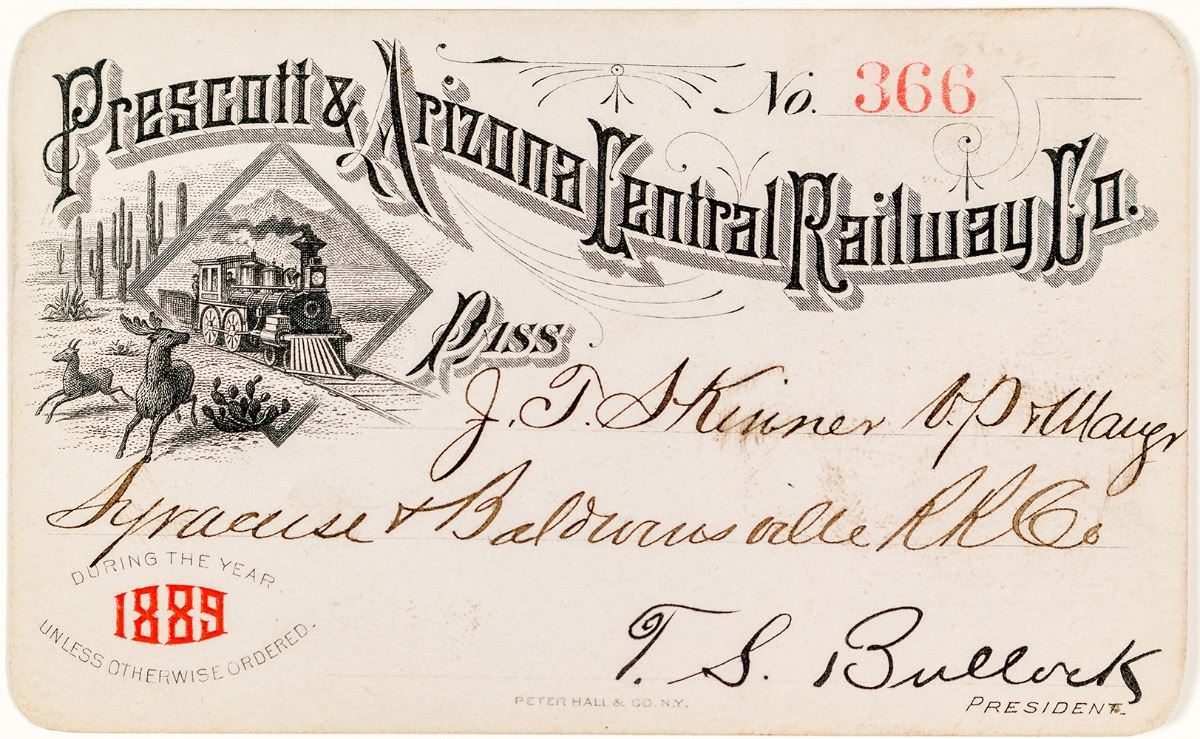 Prescott & Arizona Central Railway Co.
No. 366
Pass
J. T. Skinner V. P & Mangr
Syracuse & Baldwinsville RR Co
DURING THE YEAR
1889
UNLESS OTHERWISE ORDERED.
T. S. Bullock
PRESIDENT.
PETER HALL & CO. N.Y.